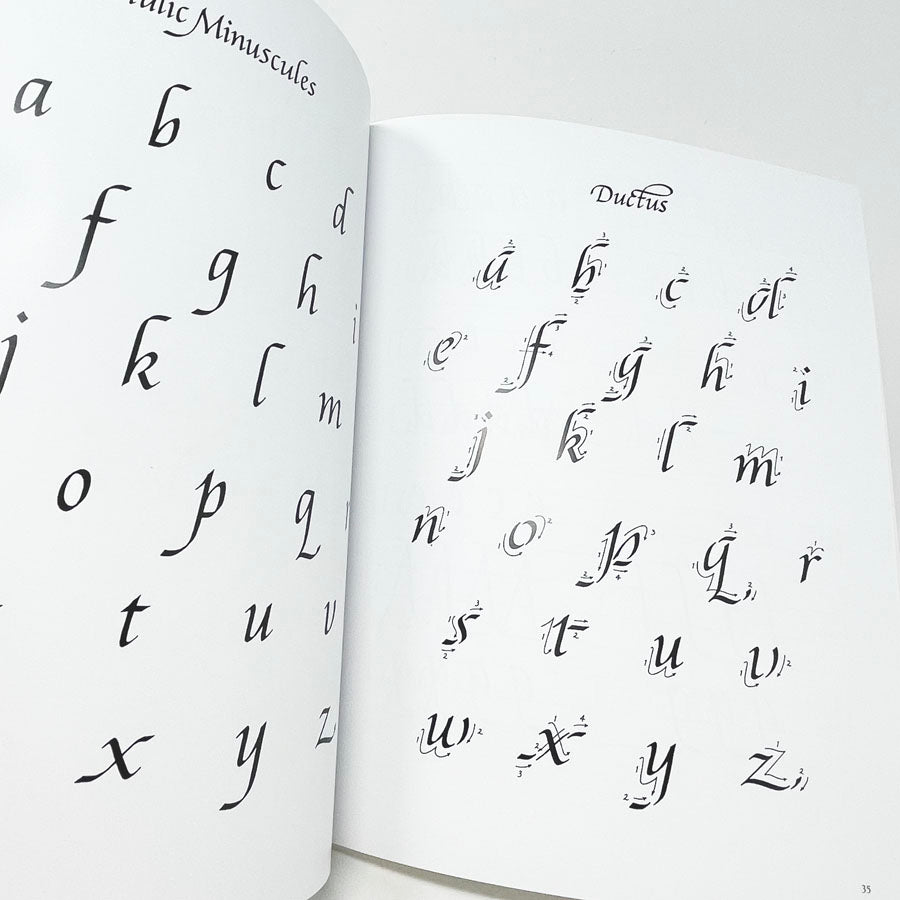 Minuscules
a b c d
f g h i
j k l m
o p q
t u v
x y z
Ductus
a b c d
e f g h i
j k l m
n o p q r
s t u v
w x y z
35